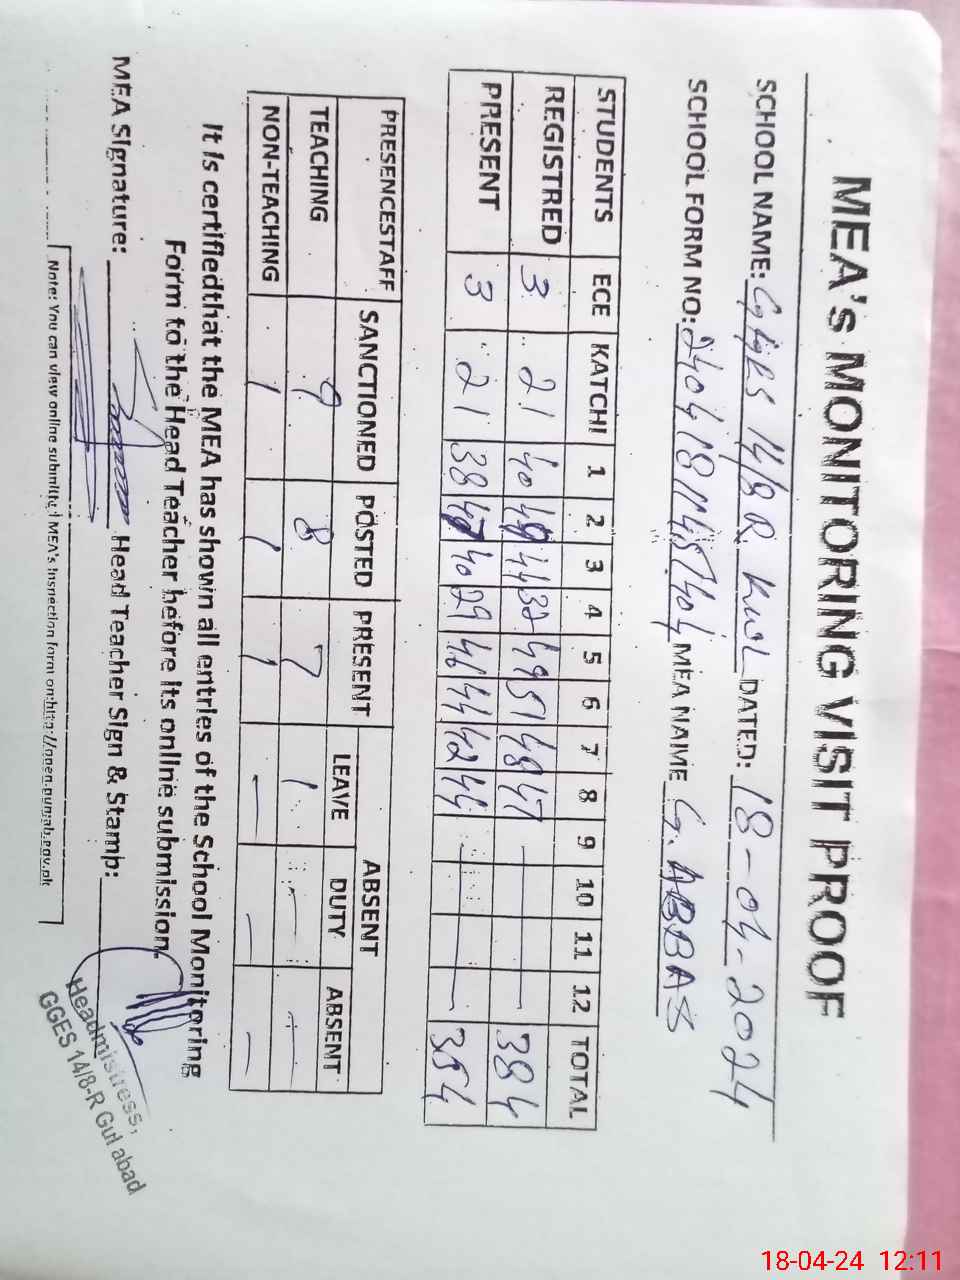 MEA's MONITORING VISIT PROOF
SCHOOL NAME: GGES 14/8 R KWL DATED: 18-04-2024
SCHOOL FORM NO: MEA NAME G. ABBAS
STUDENTS ECE KATCHI 1 2 3 4 5 6 7 8 9 10 11 12 TOTAL
REGISTRED 3 21 40 49 44 32 49 51 48 47 — 384
PRESENT 3 21 38 47 40 29 46 44 42 44 — 354
PRESENCESTAFF SANCTIONED POSTED PRESENT ABSENT
LEAVE DUTY ABSENT
TEACHING 9 8 7 1 — —
NON-TEACHING 1 1 1 — — —
It is certifiedthat the MEA has shown all entries of the School Monitoring
Form to the Head Teacher before its online submission.
MEA Signature: Head Teacher Sign & Stamp:
Headmistress,
GGES 14/8-R Gul abad
Note: You can view online submitted MEA's Inspection form on:http://open.punjab.gov.pk
18-04-24 12:11